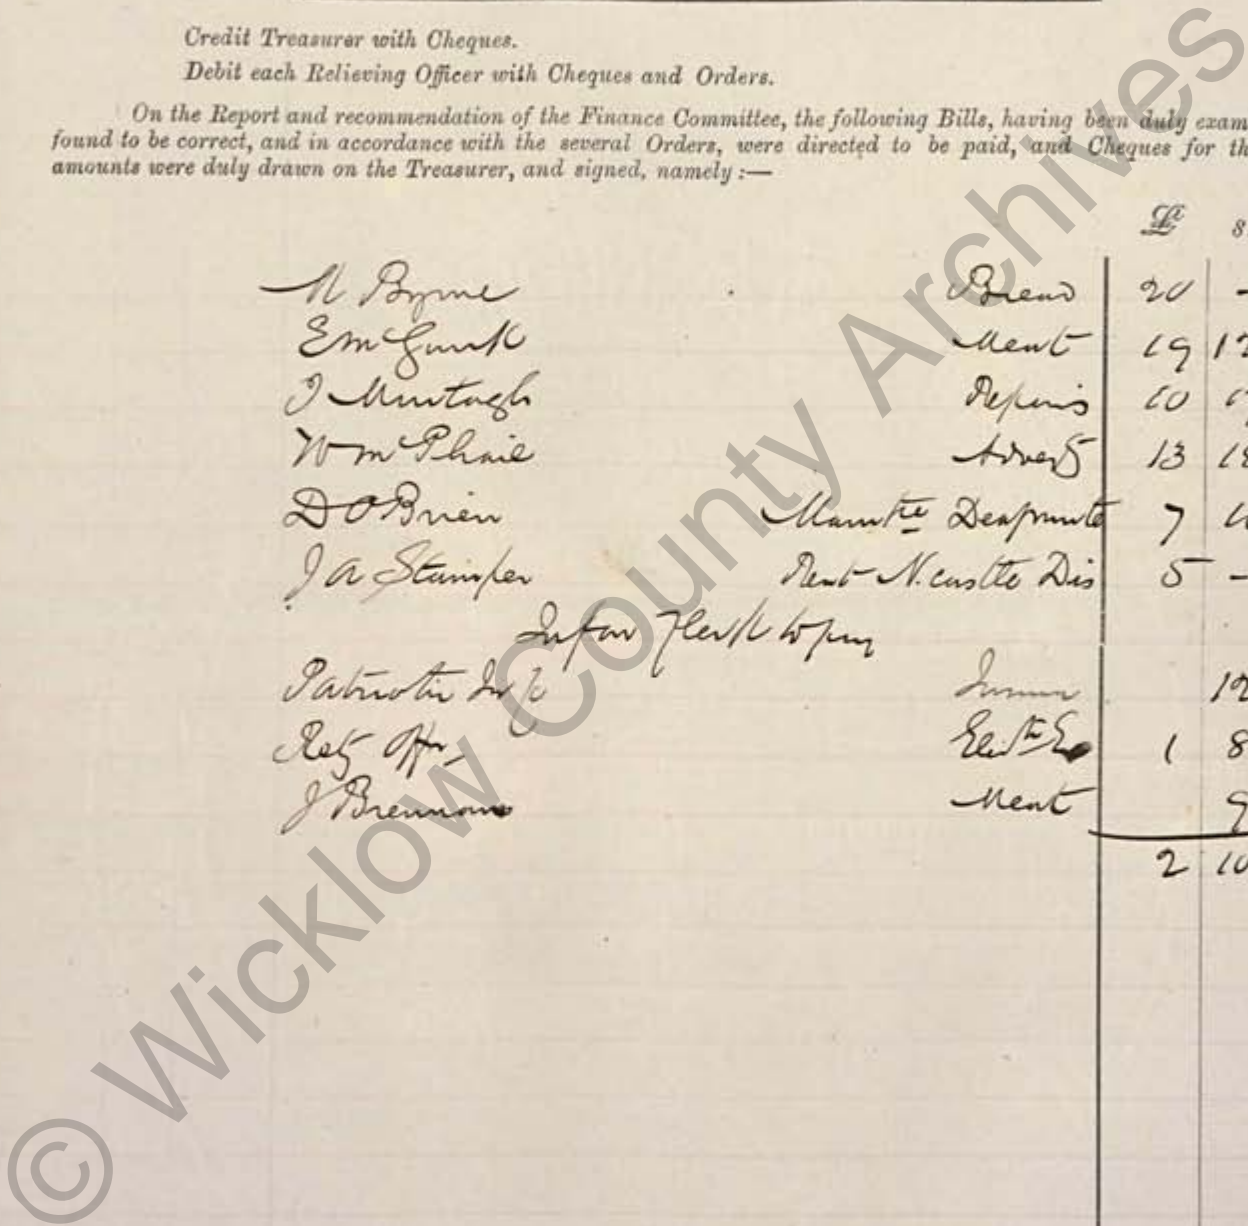 Credit Treasurer with Cheques.
Debit each Relieving Officer with Cheques and Orders.
On the Report and recommendation of the Finance Committee, the following Bills, having been duly exam
found to be correct, and in accordance with the several Orders, were directed to be paid, and Cheques for th
amounts were duly drawn on the Treasurer, and signed, namely :—
£ s
M Byrne Bread 20 -
E McGurk Meat 19
J Murtagh Repairs 10
W McPhail Advert 13
D O'Brien 7
J A Stamper Rent N.castle Dis 5 -
Clerk to pay
Patriotic 12
Offr 1 8
J Brennan Meat 9
2 10
© Wicklow County Archives